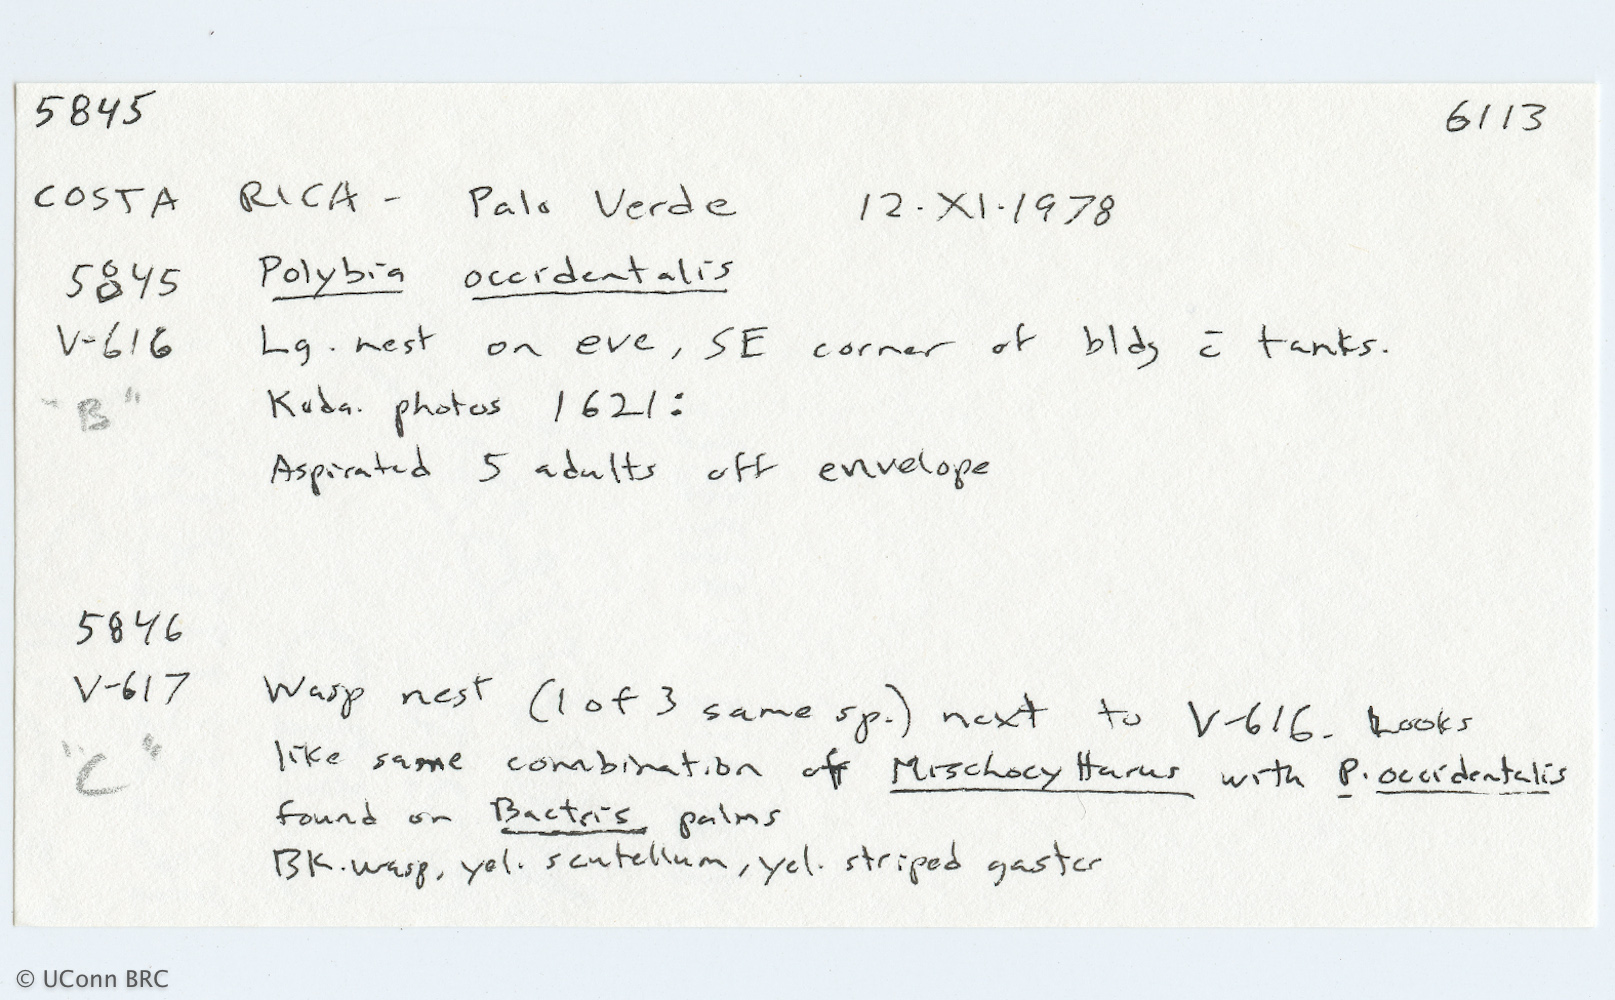 5845 6113
COSTA RICA - Palo Verde 12.XI.1978
5845 Polybia occidentalis
V-616 Lg. nest on eve, SE corner of bldg c̄ tanks.
"B" Koda. photos 1621:
Aspirated 5 adults off envelope
5846
V-617 Wasp nest (1 of 3 same sp.) next to V-616. Looks
"C" like same combination of Mischocyttarus with P. occidentalis
found on Bactris palms
BK. wasp, yel. scutellum, yel. striped gaster
© UConn BRC